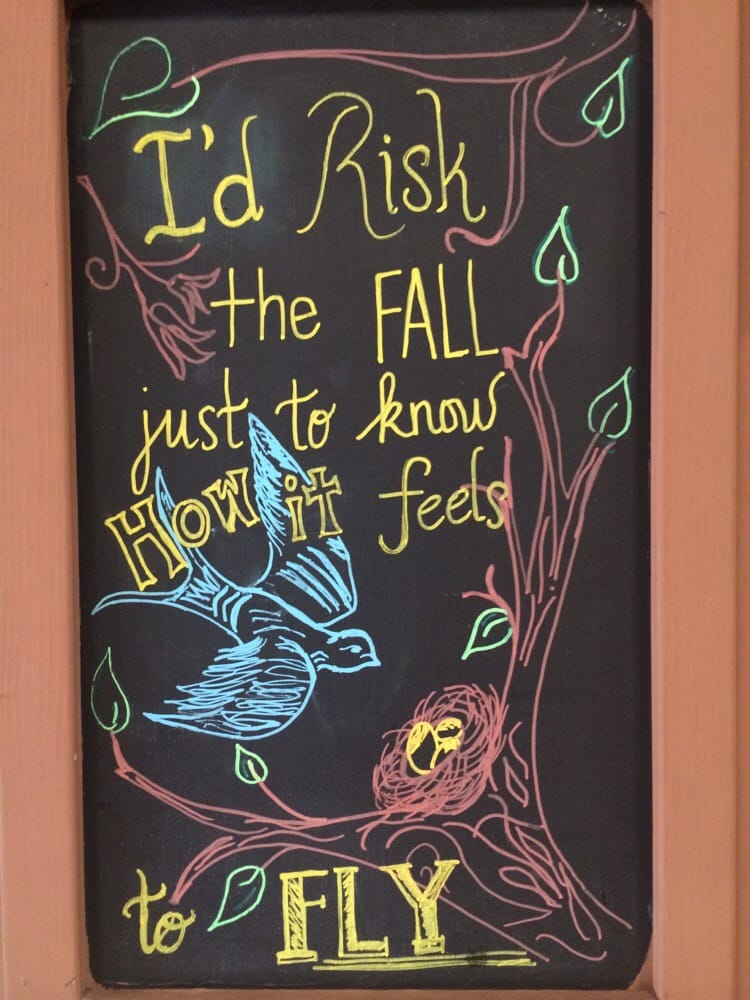 I'd Risk
the FALL
just to know
How it feels
to FLY